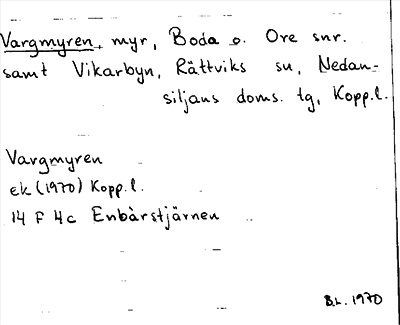 Vargmyren, myr, Boda o. Ore snr.
samt Vikarbyn, Rättviks sn, Nedan-
siljans doms. tg, Kopp.l.
Vargmyren
ek (1970) Kopp.l.
14 F 4c Enbärstjärnen
B.L. 1970